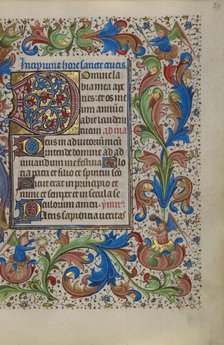 Incipiunt hore sancte crucis
Domine la
bia mea ape
ries et os me
um annun
abit laudem
tuam
Deus in adiutorium meum
intende domine ad ad
iuuandum me festina Glo
ria patri et filio et spiritui san
Sicut erat in principio et
nunc et semper et in secula se
culorum amen
Patris sapientia ueritas